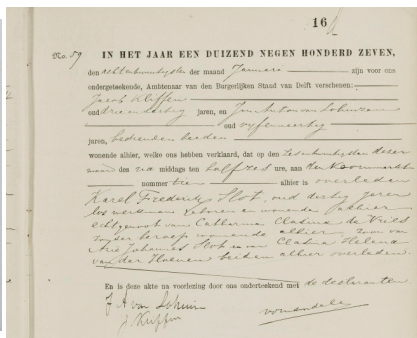 16
No. 59 IN HET JAAR EEN DUIZEND NEGEN HONDERD ZEVEN,
den achtentwintigsten der maand Januari zijn voor ons
ondergeteekende, Ambtenaar van den Burgerlijken Stand van Delft verschenen:
Jacob Kleffens
oud drieendertig jaren, en Jan Anton van Lohuizen
oud vijfenveertig
jaren, bekenden beiden
wonende alhier, welke ons hebben verklaard, dat op den zesentwintigsten dezer
maand des na middags ten half zes ure, aan den Koornmarkt
nommer tien alhier is overleden
Karel Frederik Slot, oud dertig jaren
los werkman geboren en wonende alhier
echtgenoot van Catharina Clasina de Vries
zonder beroep wonende alhier, zoon van
Arie Johannes Slot en van Clasina Helena
van der beiden alhier overleden.
En is deze akte na voorlezing door ons onderteekend met de declaranten
J A van Lohuizen
J.